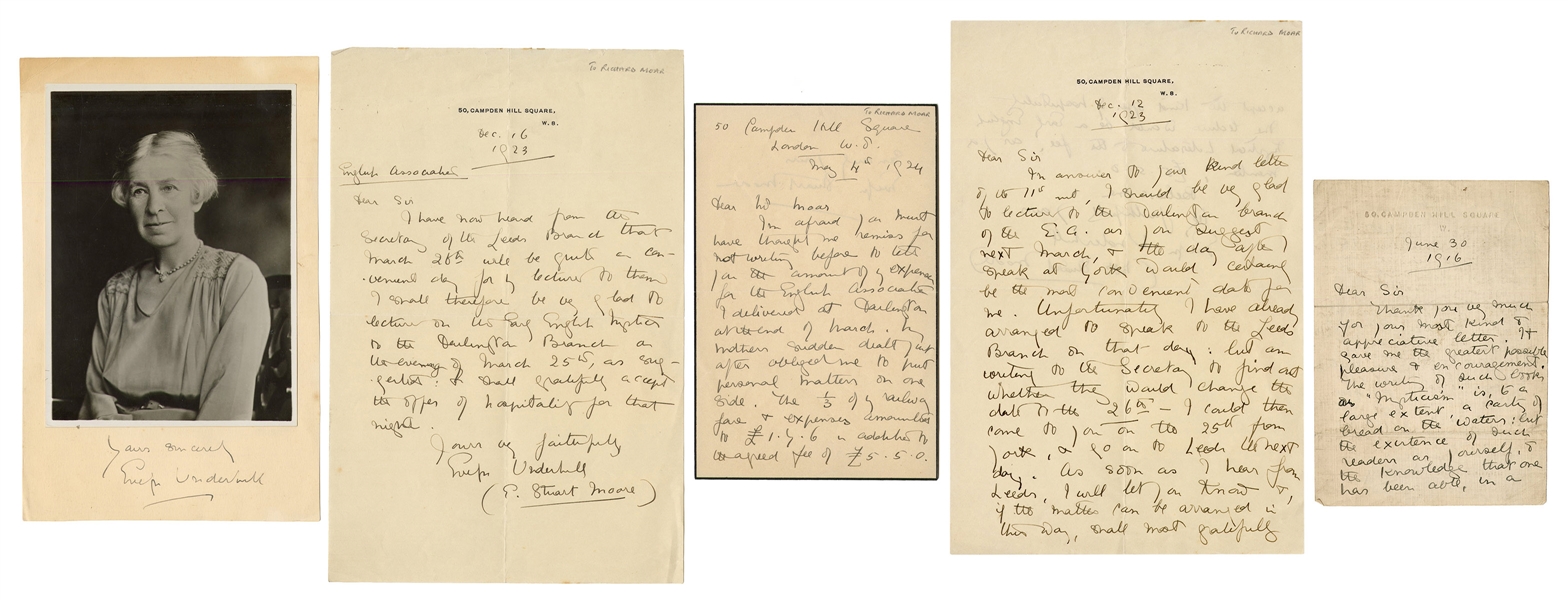 Yours sincerely
Evelyn Underhill
To RICHARD MOAR
50, CAMPDEN HILL SQUARE,
W. 8.
Dec. 16
1923
English Association
Dear Sir
I have now heard from the
Secretary of the Leeds Branch that
March 26th will be quite a con-
venient day for my lecture to them
I shall therefore be very glad to
lecture on the Early English Mystics
to the Darlington Branch on
the evening of March 25th, as sug-
gested: & shall gratefully accept
the offer of hospitality for that
night.
Yours very faithfully
Evelyn Underhill
(E. Stuart Moore)
To RICHARD MOAR
50 Campden Hill Square
London W. 8.
May 4th 1924
Dear Mr Moar
I'm afraid you must
have thought me remiss for
not writing before to tell
you the amount of my expenses
for the English Association
I delivered at Darlington
at the end of March. My
mothers sudden death just
after obliged me to put
personal matters on one
side. The 1/3 of my railway
fare & expenses amounted
to £1.7.6 in addition to
the agreed fee of £5.5.0.
To RICHARD MOAR
50, CAMPDEN HILL SQUARE,
W. 8.
Dec. 12
1923
Dear Sir
In answer to your kind letter
of the 11th, I should be very glad
to lecture to the Darlington branch
of the E.A. as you suggest
next March, & the day after I
speak at York would certainly
be the most convenient date for
me. Unfortunately I have already
arranged to speak to the Leeds
Branch on that day: but am
writing to the Secretary to find out
whether they would change the
date to the 26th – I could then
come to you on the 25th from
York, & go on to Leeds the next
day. As soon as I hear from
Leeds, I will let you know &,
if the matter can be arranged in
this way, shall most gratefully
50, CAMPDEN HILL SQUARE
W.
June 30
1916
Dear Sir
Thank you very much
for your most kind &
appreciative letter. It
gave me the greatest possible
pleasure & encouragement.
The writing of such books
as "Mysticism" is, to a
large extent, a casting of
bread on the waters: but
the existence of such
readers as yourself, &
the knowledge that one
has been able, in a